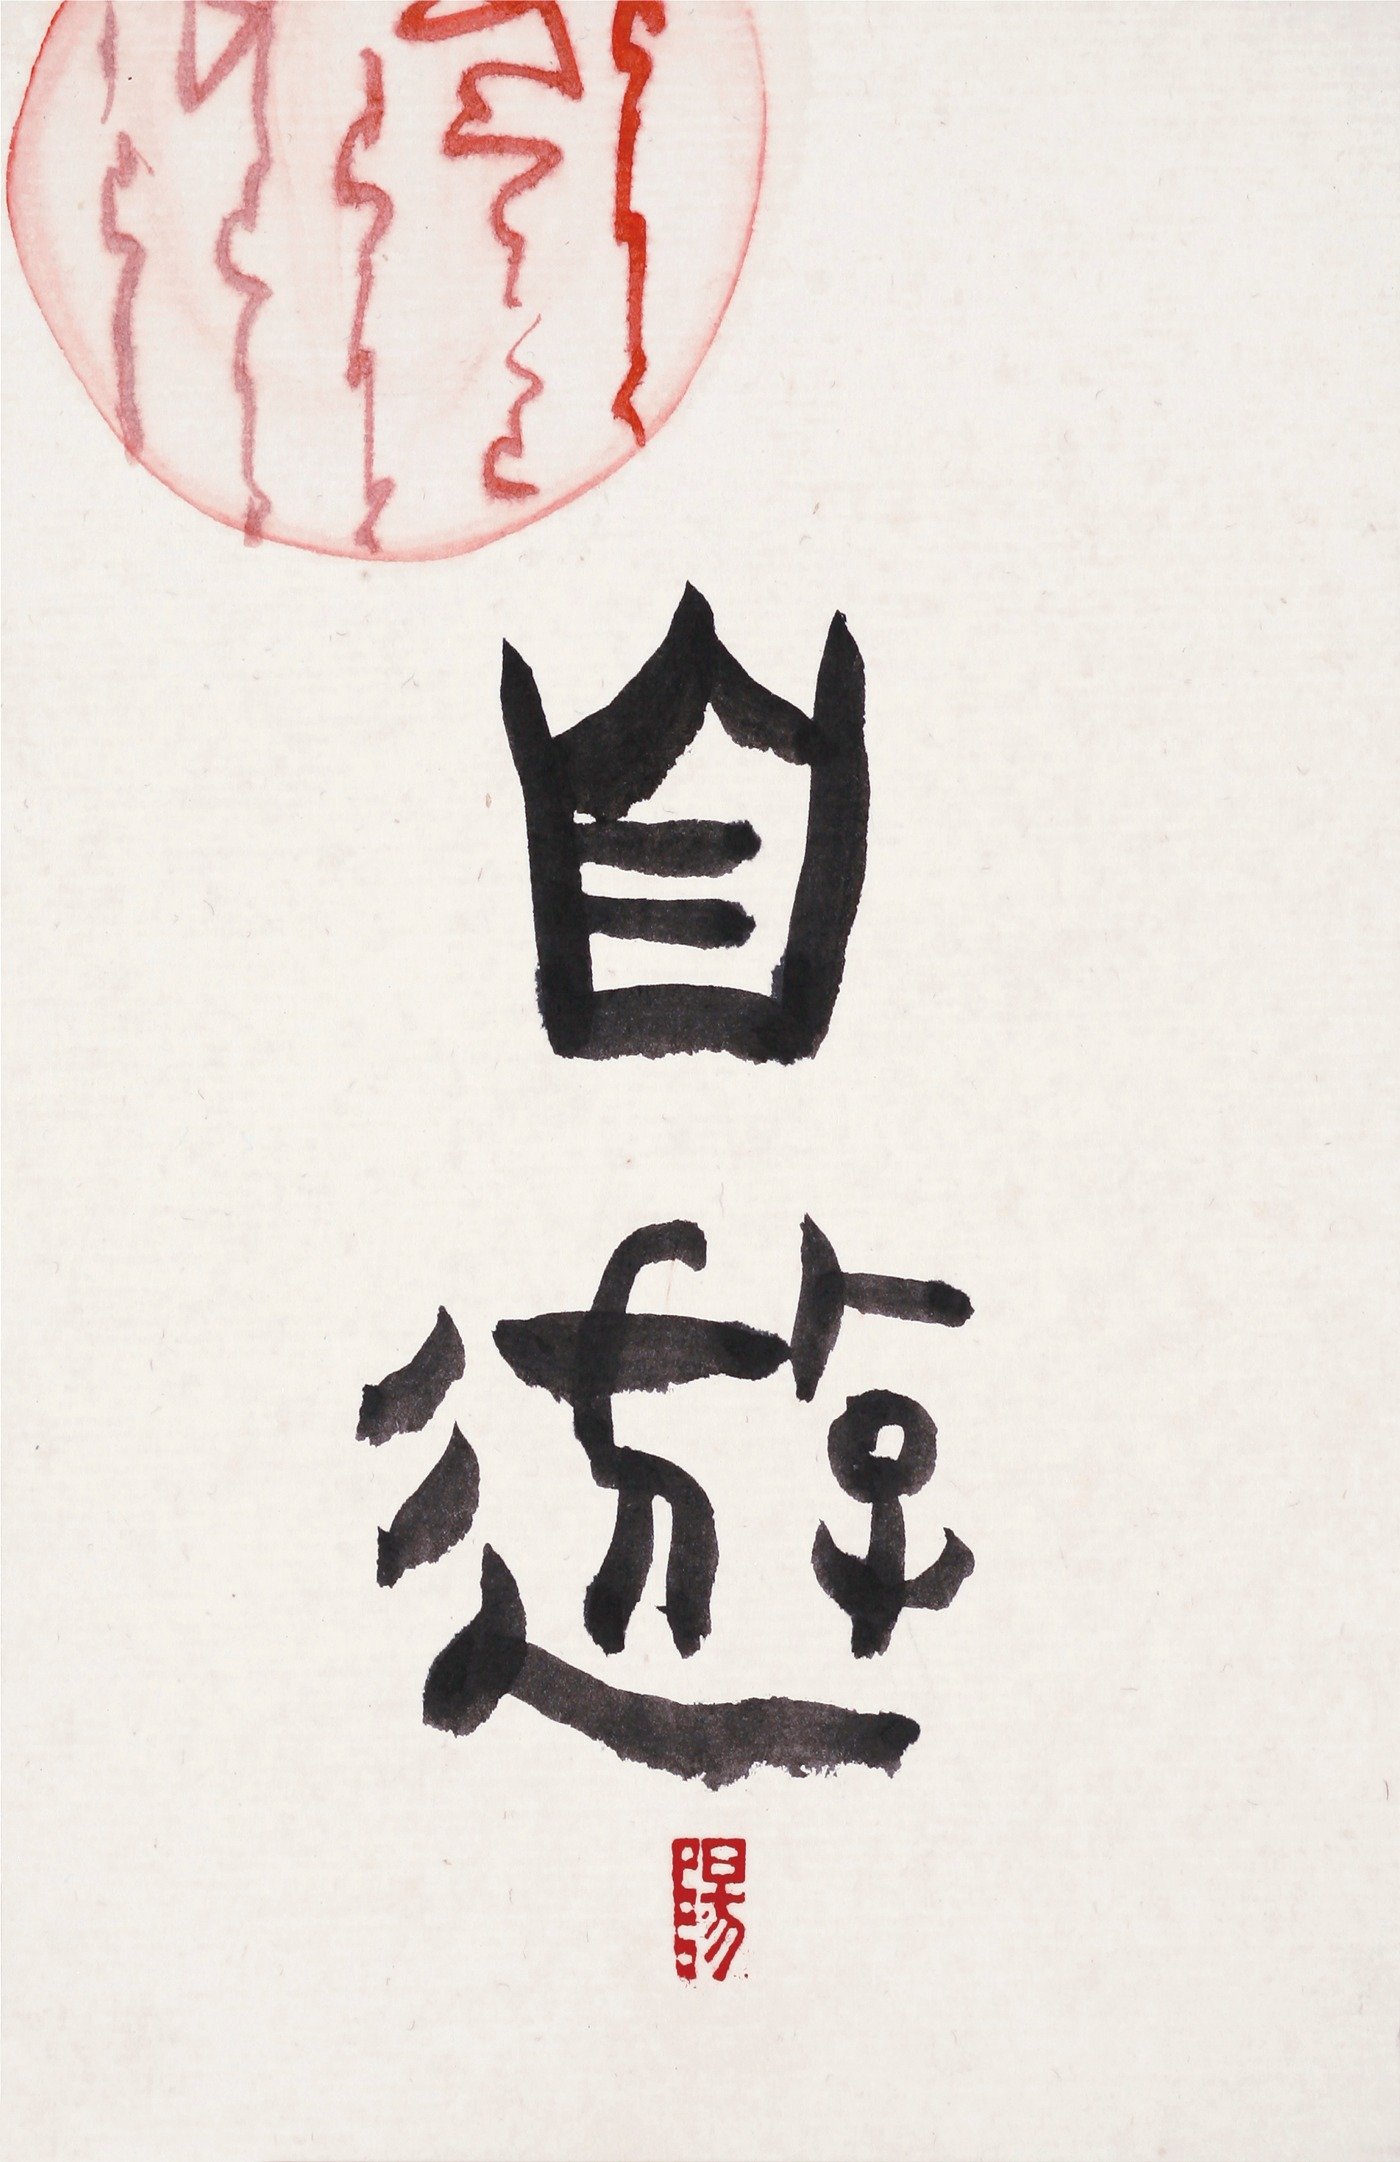 自
遊
陽